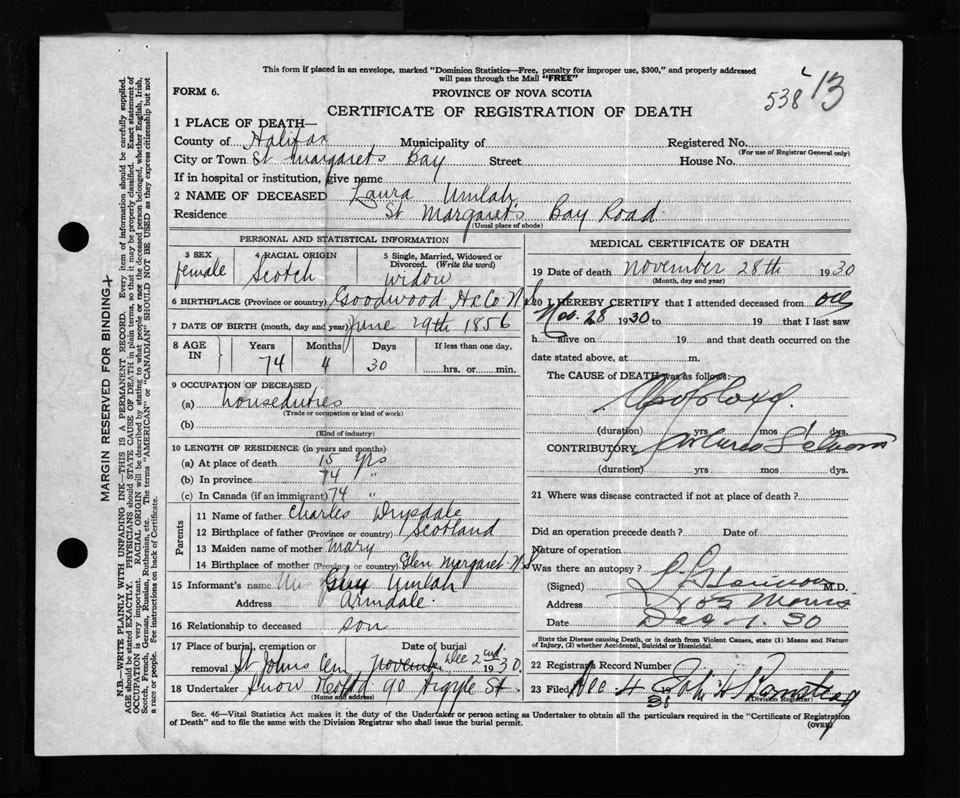 This form if placed in an envelope, marked "Dominion Statistics—Free, penalty for improper use, $300," and properly addressed
will pass through the Mail "FREE"
538 13
FORM 6. PROVINCE OF NOVA SCOTIA
CERTIFICATE OF REGISTRATION OF DEATH
1 PLACE OF DEATH—
County of Halifax Municipality of Registered No.
(For use of Registrar General only)
City or Town St Margarets Bay Street House No.
If in hospital or institution, give name
2 NAME OF DECEASED Laura Umlah
Residence St Margaret's Bay Road
(Usual place of abode)
PERSONAL AND STATISTICAL INFORMATION
3 SEX female
4 RACIAL ORIGIN Scotch
5 Single, Married, Widowed or Divorced. (Write the word) widow
6 BIRTHPLACE (Province or country) Goodwood Hx Co N.S.
7 DATE OF BIRTH (month, day and year) June 29th 1856
8 AGE IN Years Months Days If less than one day,
74 4 30 hrs. or min.
9 OCCUPATION OF DECEASED
(a) houseduties
(Trade or occupation or kind of work)
(b)
(Kind of industry)
10 LENGTH OF RESIDENCE (in years and months)
(a) At place of death 15 yrs
(b) In province 74 "
(c) In Canada (if an immigrant) 74 "
Parents
11 Name of father Charles Drysdale
12 Birthplace of father (Province or country) Scotland
13 Maiden name of mother Mary
14 Birthplace of mother (Province or country) Glen Margaret N.S
15 Informant's name Guy Umlah
Address Armdale
16 Relationship to deceased son
17 Place of burial, cremation or removal St Johns Cem
Date of burial Dec 2nd 1930.
18 Undertaker Snow 90 Argyle St
(Name and address)
MEDICAL CERTIFICATE OF DEATH
19 Date of death November 28th 1930
(Month, day and year)
20 I HEREBY CERTIFY that I attended deceased from
Nov. 28 1930 to 19 that I last saw
h alive on 19 and that death occurred on the
date stated above, at m.
The CAUSE of DEATH was as follows:
(duration) yrs mos dys.
CONTRIBUTORY
(duration) yrs mos dys.
21 Where was disease contracted if not at place of death?
Did an operation precede death? Date of
Nature of operation
Was there an autopsy?
(Signed) M.D.
Address Morris
Date Dec 1. 30
State the Disease causing Death, or in death from Violent Causes, state (1) Means and Nature
of Injury, (2) whether Accidental, Suicidal or Homicidal.
22 Registrar's Record Number
23 Filed Dec 4 19 30 John
(Division Registrar)
Sec. 46—Vital Statistics Act makes it the duty of the Undertaker or person acting as Undertaker to obtain all the particulars required in the "Certificate of Registration
of Death" and to file the same with the Division Registrar who shall issue the burial permit.
(OVER)
MARGIN RESERVED FOR BINDING
N.B.—WRITE PLAINLY WITH UNFADING INK—THIS IS A PERMANENT RECORD. Every item of information should be carefully supplied.
AGE should be stated EXACTLY. PHYSICIANS should STATE CAUSE OF DEATH in plain terms so that it may be properly classified. Exact statement of
OCCUPATION is very important. RACIAL ORIGIN will be described by stating to what people or race the deceased person belonged, whether English, Irish,
Scotch, French, German, Russian, Ruthenian, etc. The terms "AMERICAN" or "CANADIAN" SHOULD NOT BE USED as they express citizenship but not
a race or people. See instructions on back of Certificate.